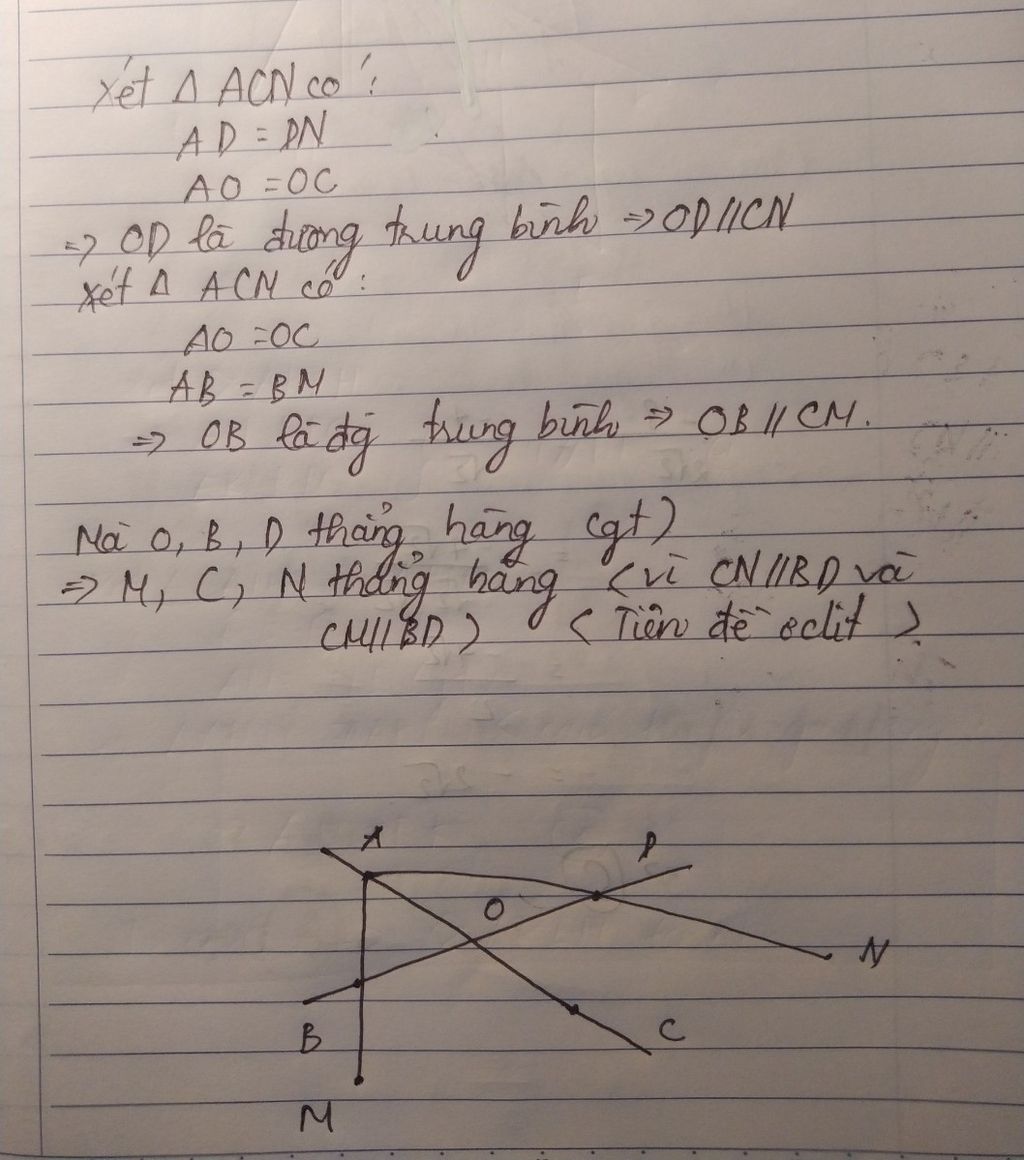 Xét Δ ACN có :
AD = DN
AO = OC
=> OD là đương trung bình => OD//CN
Xét Δ ACN có :
AO = OC
AB = BM
=> OB là đg trung bình => OB // CM.
Mà O, B, D thẳng hàng (gt)
=> M, C, N thẳng hàng (vì CN//BD và
CM//BD) (Tiên đề eclit)
A
D
O
N
B
C
M